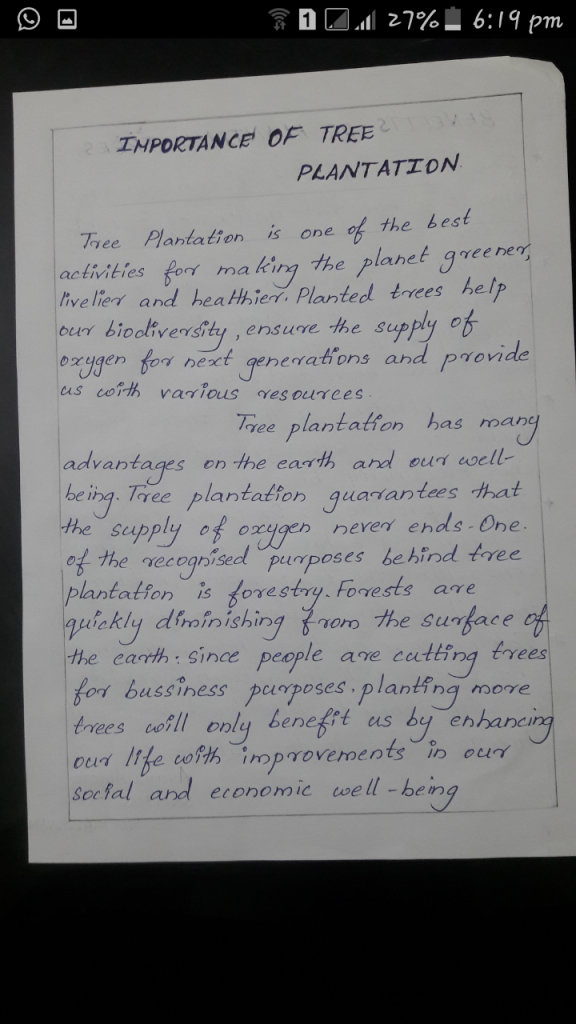 1 27% 6:19 pm
IMPORTANCE OF TREE
PLANTATION
Tree Plantation is one of the best
activities for making the planet greener,
livelier and healthier. Planted trees help
our biodiversity, ensure the supply of
oxygen for next generations and provide
us with various resources.
Tree plantation has many
advantages on the earth and our well-
being. Tree plantation guarantees that
the supply of oxygen never ends. One.
of the recognised purposes behind tree
plantation is forestry. Forests are
quickly diminishing from the surface of
the earth. since people are cutting trees
for bussiness purposes. planting more
trees will only benefit us by enhancing
our life with improvements in our
social and economic well-being